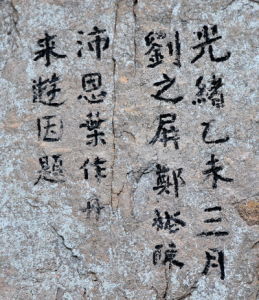 光緒乙未三月
劉之屏鄭㟽陳
沛恩葉佳丹
来遊因題